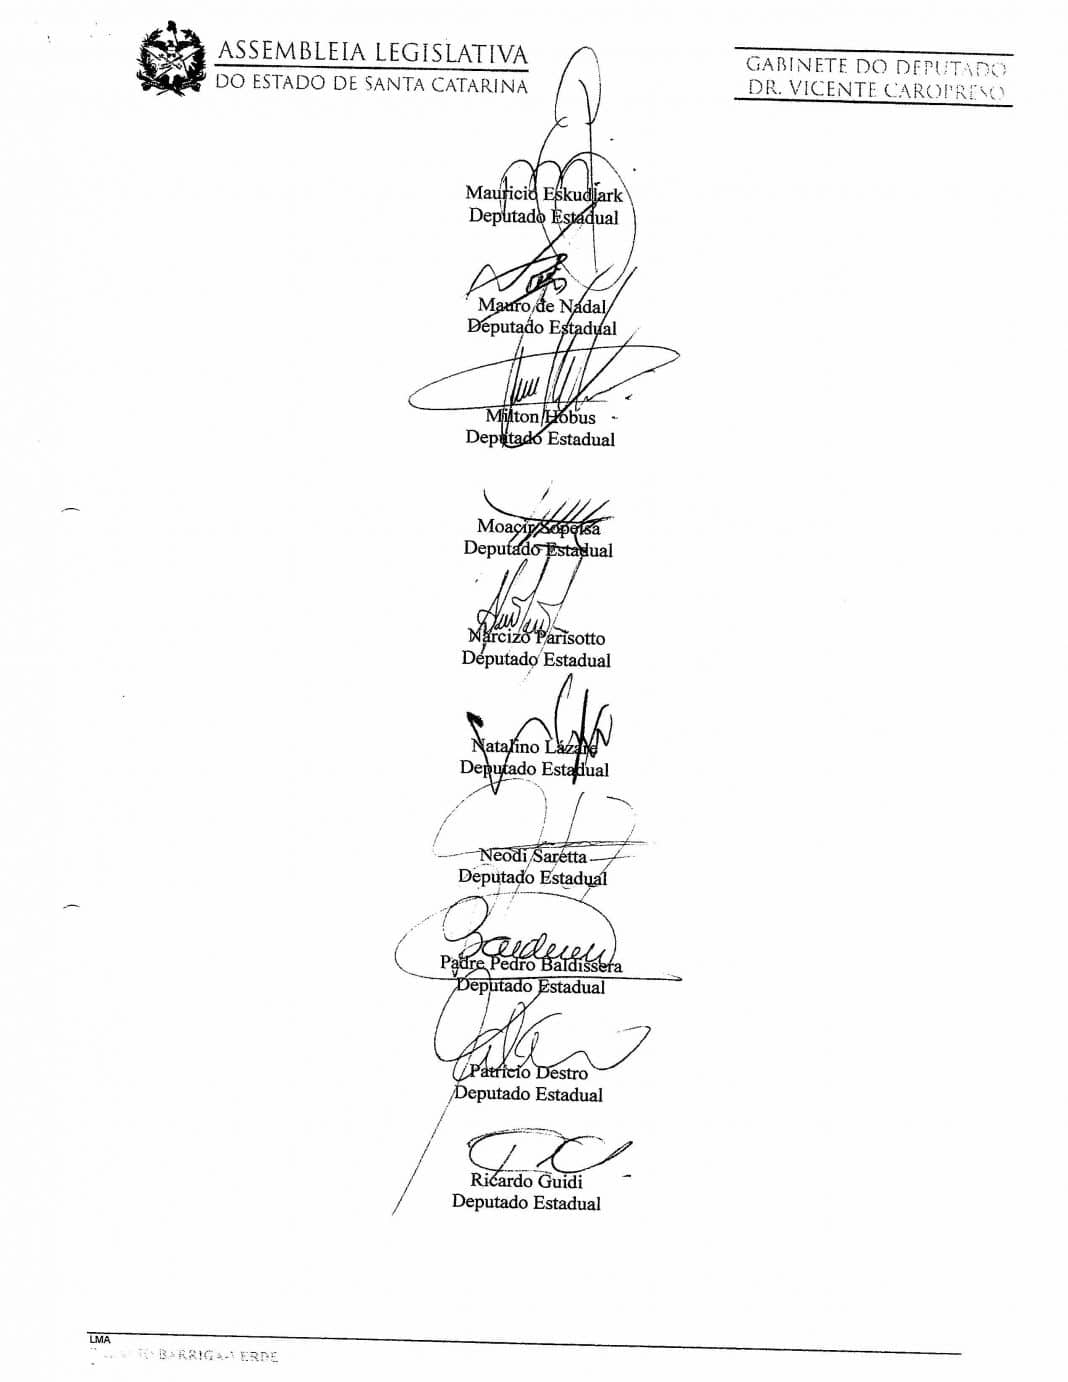 ASSEMBLEIA LEGISLATIVA
DO ESTADO DE SANTA CATARINA
GABINETE DO DEPUTADO
DR. VICENTE CAROPRESO
Mauricio Eskudlark
Deputado Estadual
Mauro de Nadal
Deputado Estadual
Milton Hobus
Deputado Estadual
Moacir Sopelsa
Deputado Estadual
Narcizo Parisotto
Deputado Estadual
Natalino Lázare
Deputado Estadual
Neodi Saretta
Deputado Estadual
Padre Pedro Baldissera
Deputado Estadual
Patrício Destro
Deputado Estadual
Ricardo Guidi
Deputado Estadual
LMA
BARRIGA-VERDE